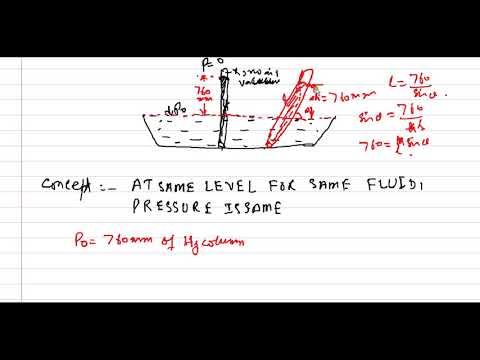 P=0
→ no air
vacuum
760
mm
P₀
L
Δh=760mm
θ
L = 760/sinθ
sinθ = 760/L
760 = L sinθ
Concept:- AT SAME LEVEL FOR SAME FLUID,
PRESSURE IS SAME
P₀ = 760mm of Hg column